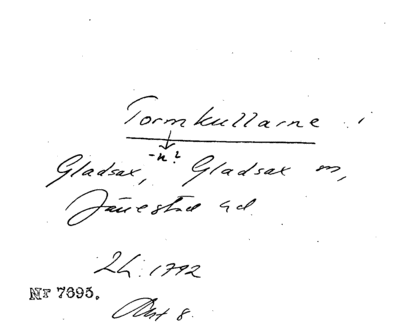 Tormkullarne i
-n?
Gladsax, Gladsax sn,
Järrestad hd.
Lh: 1792
Nr 7695.
Akt 8.